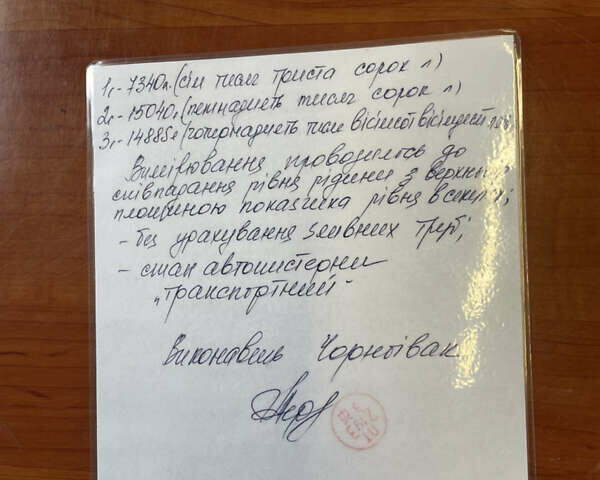 1. - 7340л. (сім тисяч триста сорок л)
2. - 15040л (пятнадцять тисяч сорок л)
3. - 14885л (чотирнадцять тисяч вісімсот вісімдесят п'ять
Вимірювання проводилось до
співпадання рівня рідини з верхньою
площиною показчика рівня в секції;
- без урахування зливних труб;
- стан автоцистерни
„транспортний"
Виконавець